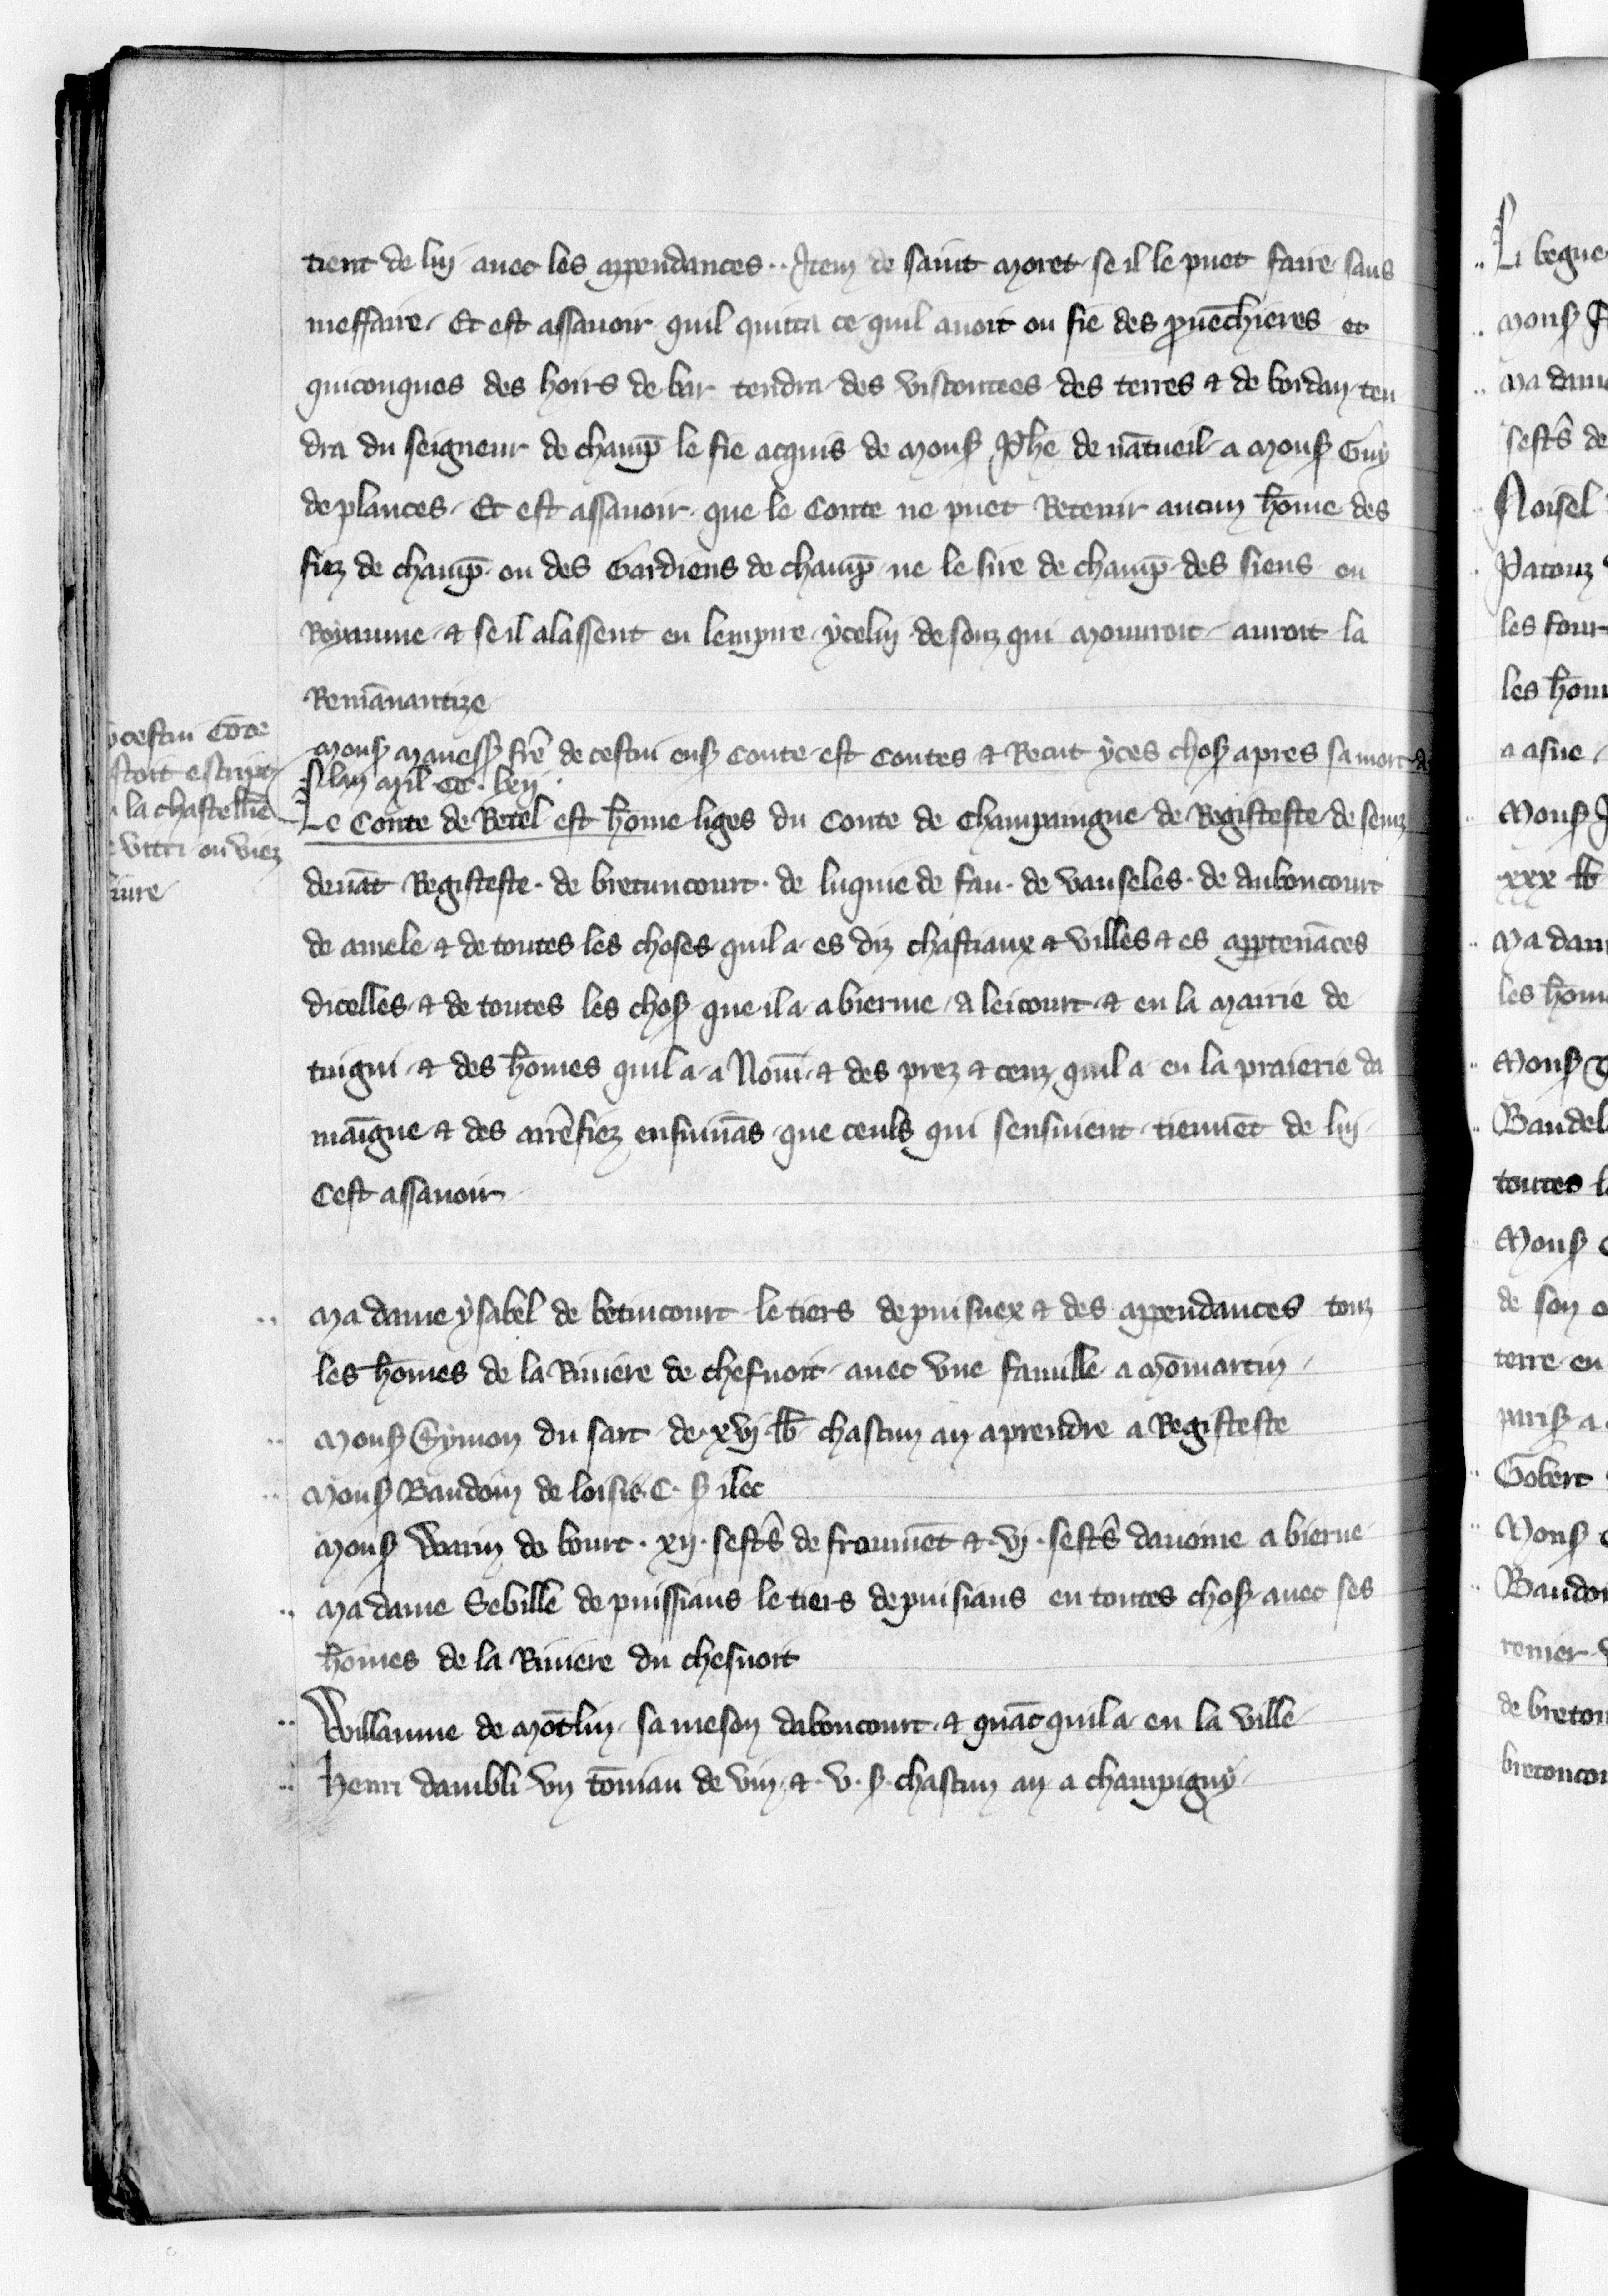 tient de lui avec les appendances .. Item de saint moret se il le puet faire sans
meffaire. Et est assavoir quil quitta ce quil avoit ou fie des pruvēchieres et
quiconques des hoirs de bar tendra des viscontees des terres & de bordan ten
dra du seigneur de champ̄ le fie acquis de mons̄ Ph̄e de nātueil a mons̄ Guy
de plances. Et est assavoir que le Conte ne puet Retenir aucun hōme des
fiez de champ̄ ou des Gardiens de champ̄ ne le sire de champ̄ des siens ou
Royaume & se il alassent en lempire ycelui de souz qui mouuroit auroit la
Remānantize
Mons̄ manes̄ frē de cestui ens̄ Conte est Contes & Recut yces chos̄ apres sa mort
lan mil. CC. lxij.
Le Conte de Retel est hōme liges du Conte de Champaingne de Registeste de semz
devāt Registeste. de bretuncourt. de luquie de fau. de vauseles. de auboncourt
de amele & de toutes les choses quil a es diz chastiaux & villes & es apptenāces
dicelles & de toutes les chos̄ que il a a bierme a leicourt & en la mairie de
tuigni & des hōmes quil a a Novi & des prez & cenz quil a en la praierie da
maīgne & des arrēfiez ensuivās que ceuls qui sensuient tiennēt de lui
Cest assavoir
ycestui Cōte
estoit escript
en la chastellēn
de vitri ou viez
livre
.. Ma dame ysabel de betincourt le tiers de puisuex & des appendances touz
les hōmes de la Riviere de chesnoit avec vne famille a mōmartin
.. Mons̄ Symon du sart de. xvj. lb̄ chascun an a prendre a Registeste
.. Mons̄ Baudoin de loisie. C. s̄ ilec
Mons̄ Warin de bourt. xij. sesters̄ de fromēt & vj. sesters̄ davoine a bierme
.. Ma dame Sebille de puissians le tiers de puisians en toutes chos̄ avec ses
hōmes de la Riviere du chesnoit
.. Willaume de mōtlin sa meson daboncourt & quāt quil a en la ville
.. Henri dambli vn tōniau de vin & v. s̄ chascun an a champigny
.. Li begue
.. Mons̄
.. Ma dame
sesters̄ de
Noisel
Patouz
les four
les hōm
a asne
.. Mons̄
xxx lb̄
.. Ma dam
les hōm
.. Mons̄
.. Baudel
toutes l
Mons̄
de son
terre en
paris̄ a
.. Gobert
.. Mons̄
.. Baudo
renier
de breton
bretoncou